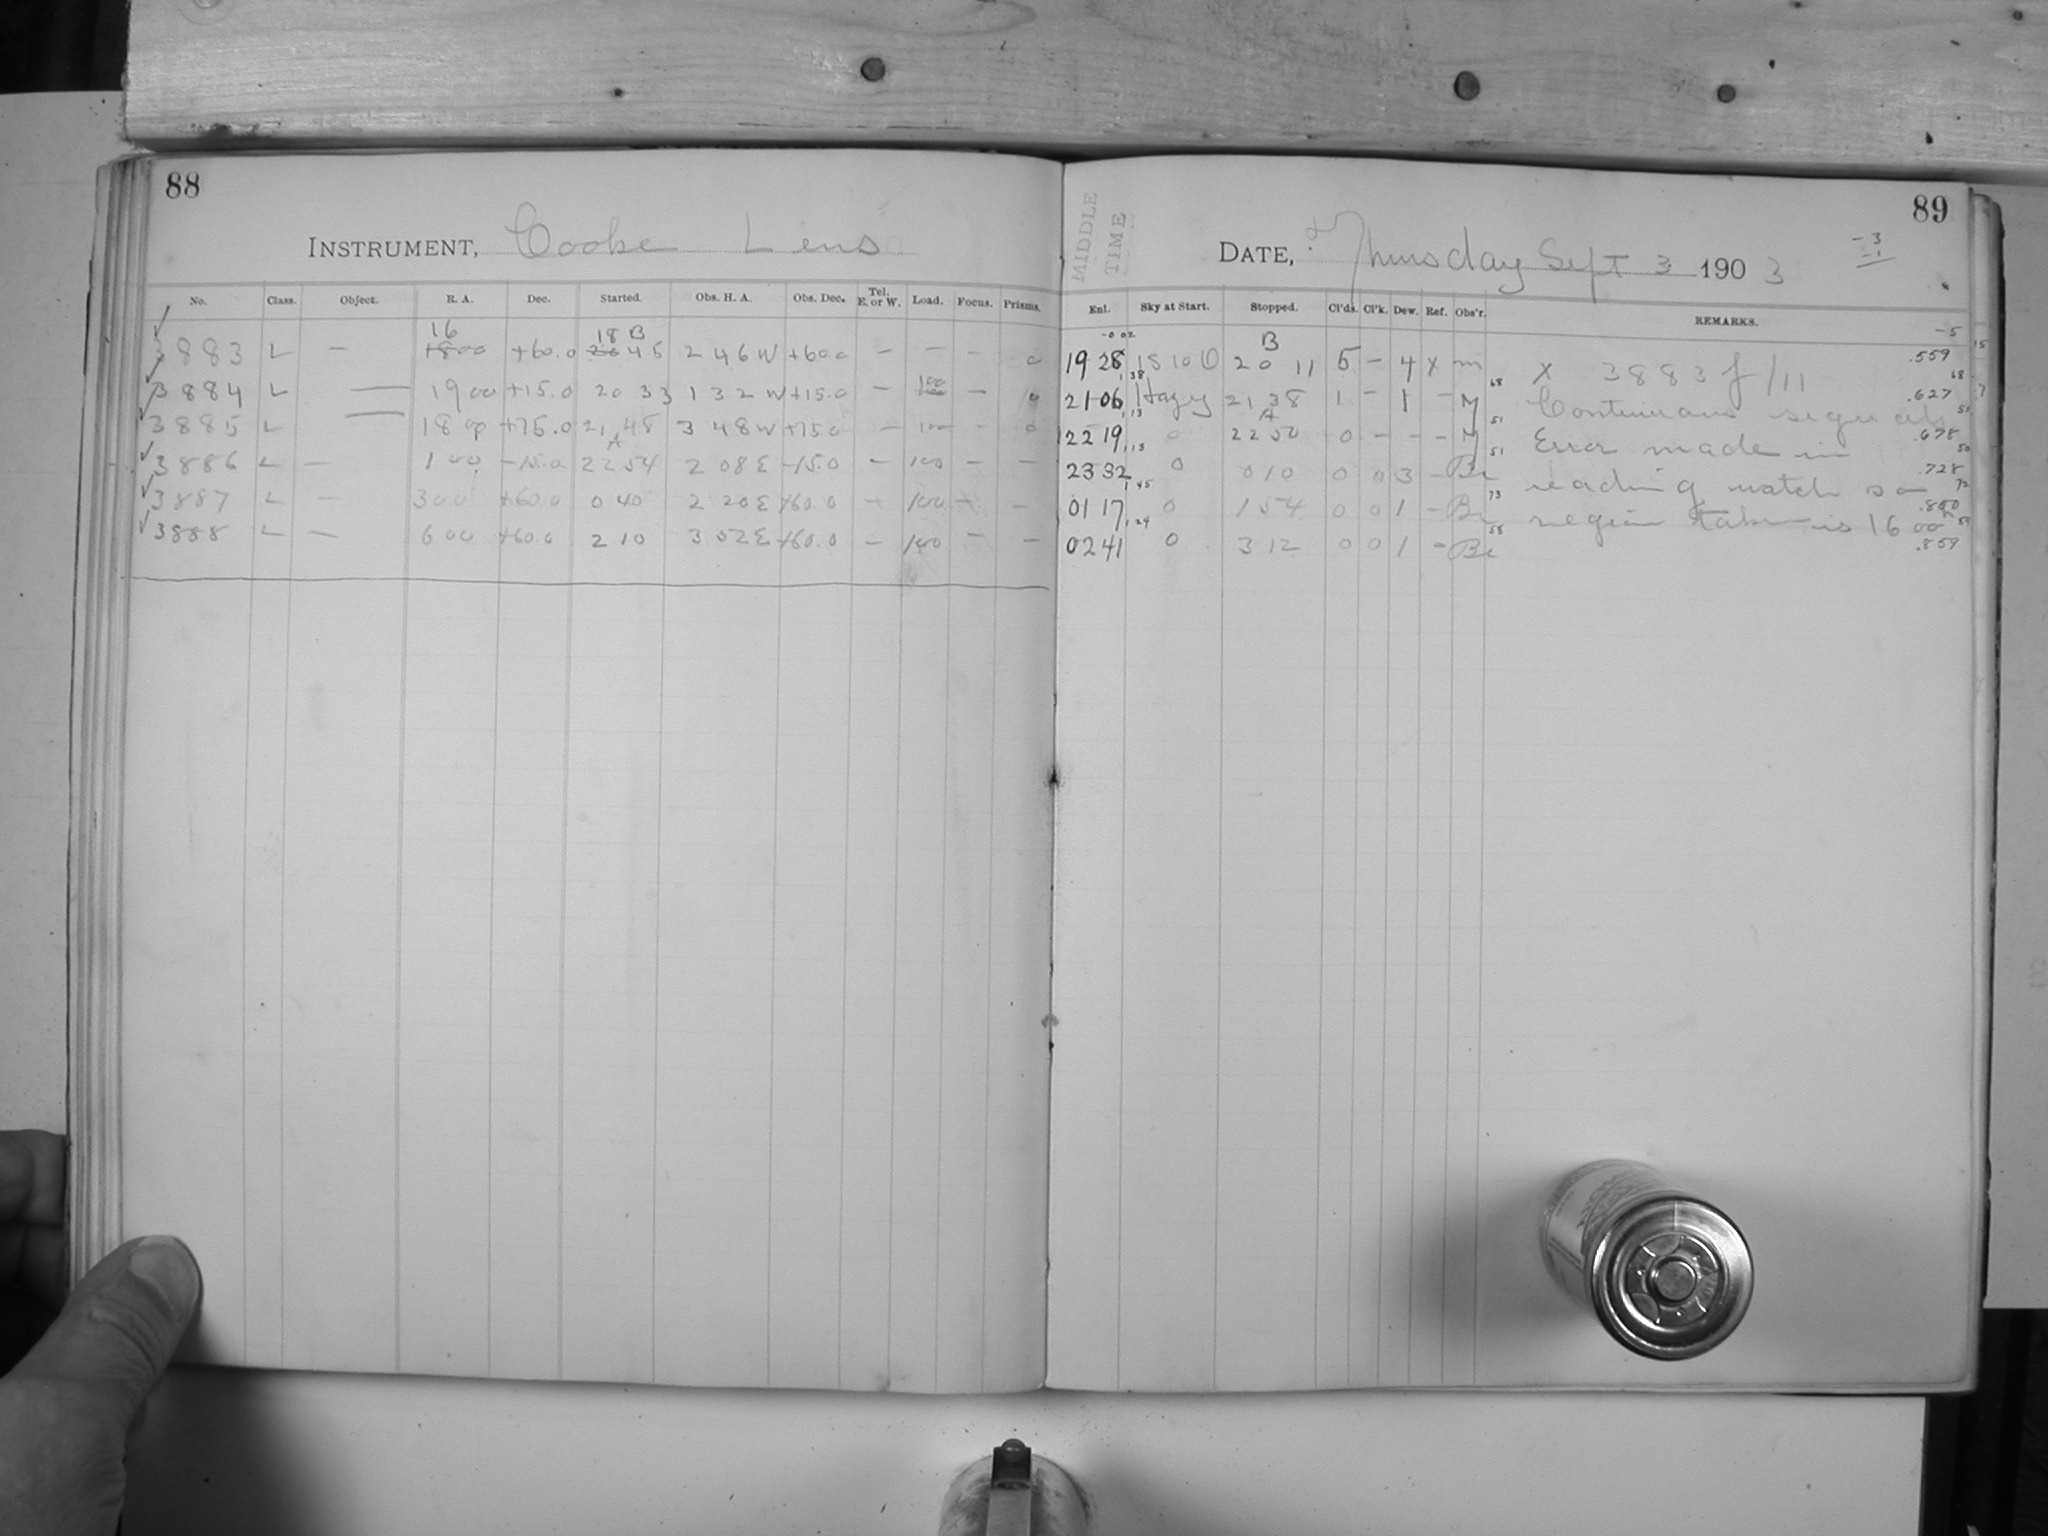 88
INSTRUMENT, Cooke Lens
No. Class. Object. R. A. Dec. Started. Obs. H. A. Obs. Dec. Tel. E. or W. Load. Focus. Prisms.
16 18 B
3883 L — 1800 +60.0 20 45 2 46 W +60.0 — — — 0
3884 L — 19 00 +15.0 20 33 1 32 W +15.0 — 100 — 0
3885 L — 18 00 +75.0 21 48 3 48 W +75.0 — 100 — 0
A
3886 L — 1 00 -15.0 22 54 2 08 E -15.0 — 100 — —
3887 L — 3 00 +60.0 0 40 2 20 E +60.0 — 100 — —
3888 L — 6 00 +60.0 2 10 3 52 E +60.0 — 100 — —
MIDDLE
TIME
89
DATE, Thursday Sept 3 1903
-3
-1
Enl. Sky at Start. Stopped. Cl'ds. Cl'k. Dew. Ref. Obs'r. REMARKS.
-0 02 B -5
19 28 20 11 5 — 4 x m x 3883 f/11 .559
1 38 68 68
21 06 Hazy 21 38 1 — 1 — M Continuous .627
1 13 A 51 51
22 19 0 22 50 0 — — — M Error made in .678
1 13 51 50
23 32 0 0 10 0 0 3 — Be reading watch so .728
1 45 73 72
01 17 0 1 54 0 0 1 — Be region taken is 16 00 .800
1 24 58
02 41 0 3 12 0 0 1 — Be .859